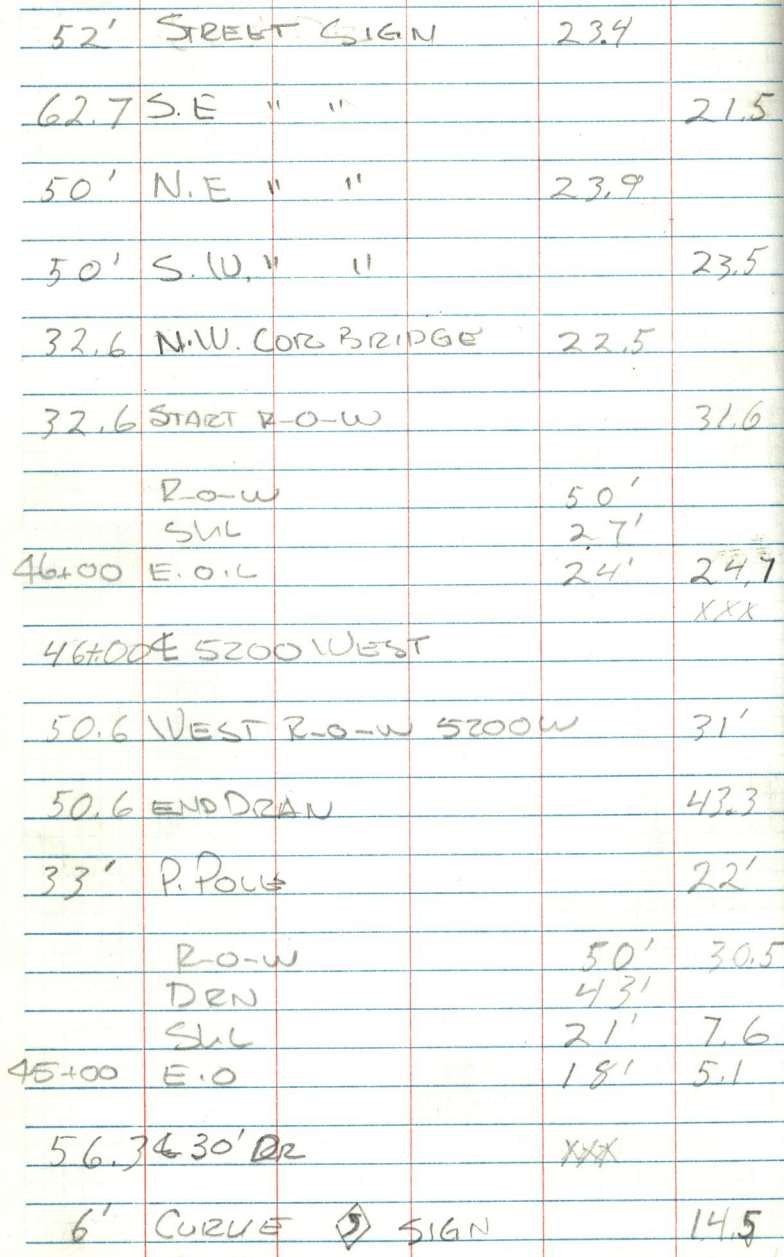 52' STREET SIGN 23.4
62.7 S.E " " 21.5
50' N.E " " 23.9
50' S.W. " " 23.5
32.6 N.W. COR BRIDGE 22.5
32.6 START R-O-W 31.6
R-O-W 50'
SHL 27'
46+00 E.O.L 24' 24.7
XXX
46+00 ℄ 5200 WEST
50.6 WEST R-O-W 5200W 31'
50.6 END DRAN 43.3
33' P. POLE 22'
R-O-W 50' 30.5
DRN 43'
SHL 21' 7.6
45+00 E.O 18' 5.1
56.3 ℄ 30' DR XXX
6' CURVE SIGN 14.5